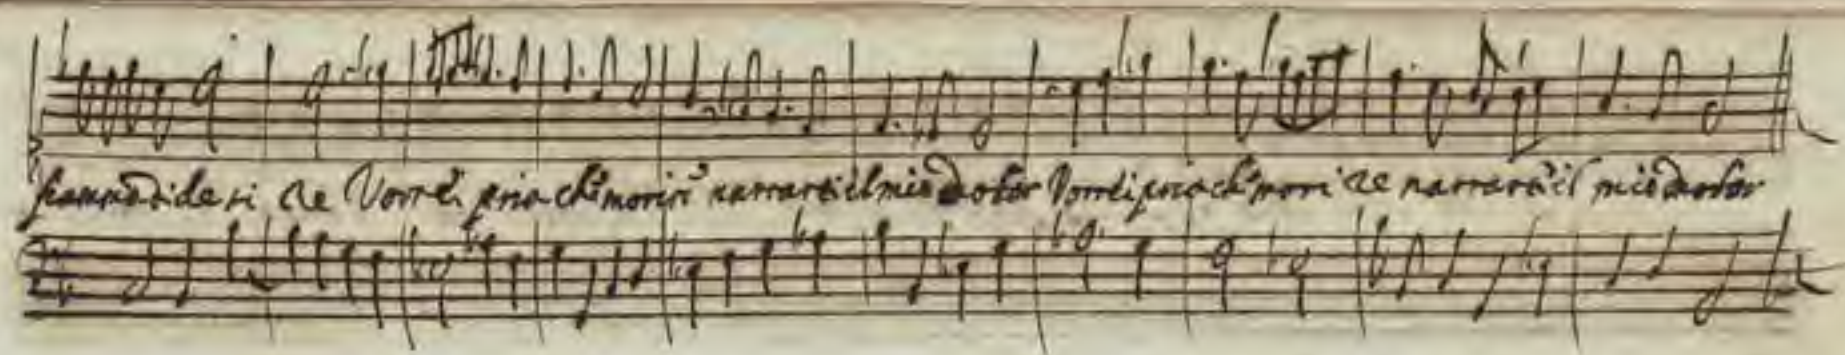 fiamma di desi re Vorrei pria che morire narrarti il mio dolor Vorrei pria che mori re narrarti il mio dolor